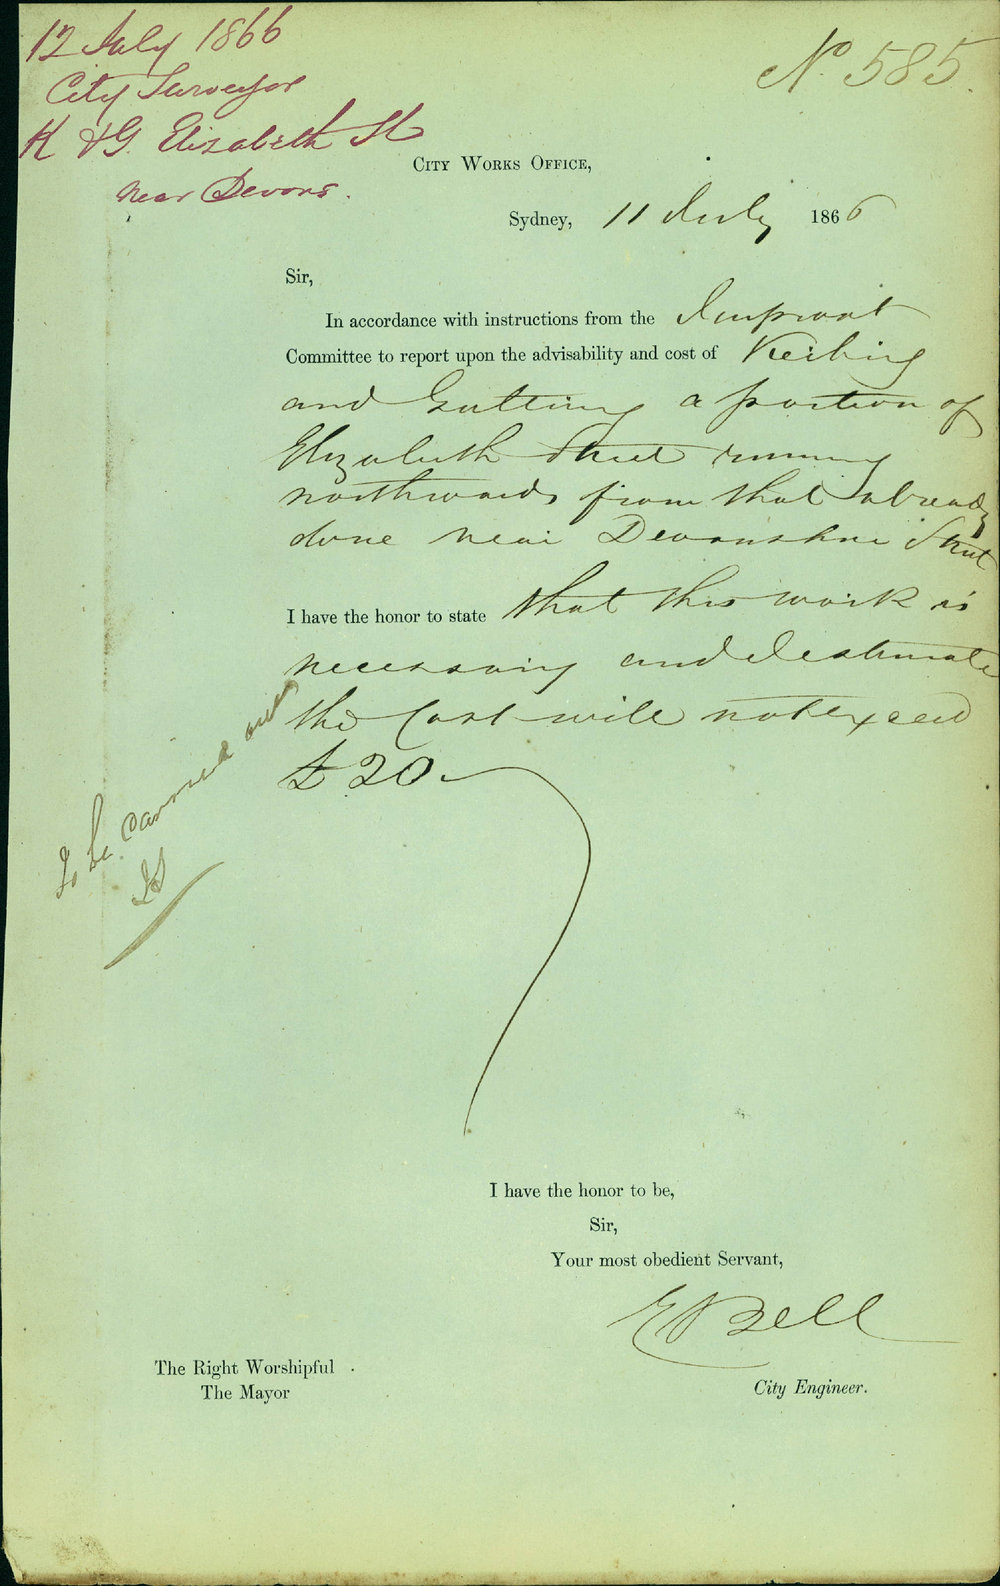 12 July 1866
City Surveyor
K & G. Elizabeth St
near Devons.
No. 585.
CITY WORKS OFFICE,
Sydney, 11 July 1866
Sir,
In accordance with instructions from the Improvmt
Committee to report upon the advisability and cost of Kerbing
and Guttering a portion of
Elizabeth Street running
northwards from that already
done near Devonshire Street
I have the honor to state that this work is
necessary and I estimate
the Cost will not exceed
£20
To be carried out
I have the honor to be,
Sir,
Your most obedient Servant,
E Bell
City Engineer.
The Right Worshipful
The Mayor